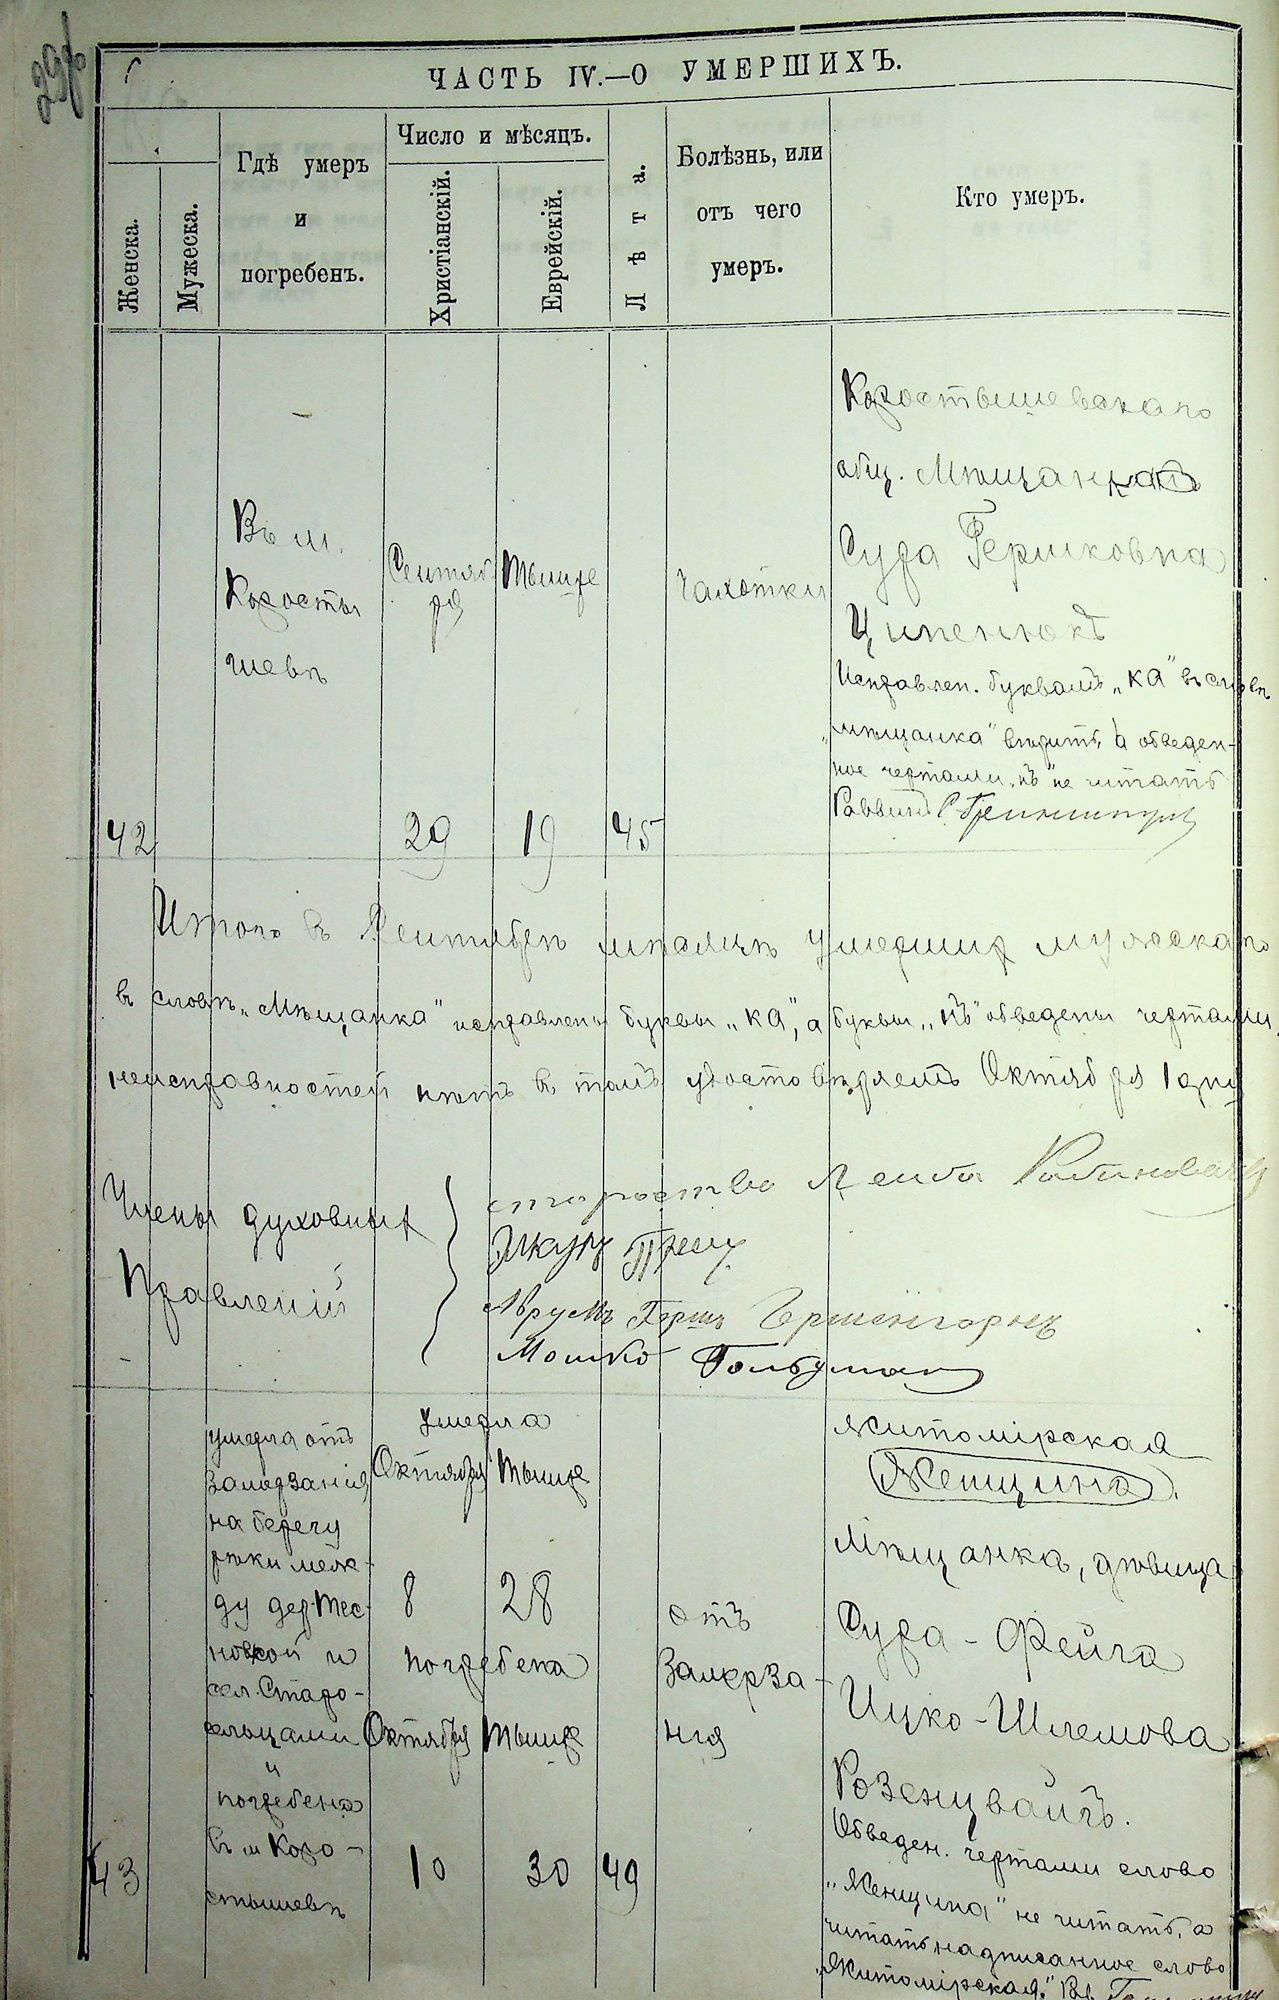 ЧАСТЬ IV.—О УМЕРШИХЪ.
Женска.
Мужеска.
Гдѣ умеръ
и
погребенъ.
Число и мѣсяцъ.
Христіанскій.
Еврейскій.
Лѣта.
Болѣзнь, или
отъ чего
умеръ.
Кто умеръ.
42
Въ м.
Коросты
шевѣ
Сентяб
ря
29
Тышре
19
45
Чахотки
Коростышевскаго
общ. Мѣщанка
Сура Гершковна
Ципенюкъ
Исправлен. буквамъ „КА" въ словѣ
„мѣщанка" вѣрить, а обведен-
ное чертами „нъ" не читать
Раввинъ
Итого въ Сентябрѣ мѣсяцѣ умерших мужскаго
въ словѣ „Мѣщанка" исправлены буквы „КА", а буквы „нъ" обведены чертами,
неисправностей нѣтъ въ томъ удостовѣряемъ Октября 1 дня
Члены духовных
Правленій
староство Лейба
Аврумъ Герш
Мошко Гольдман
43
умерла отъ
замерзанія
на берегу
рѣки меж-
ду дер. Тес-
новкой и
сел. Старо-
сельцами
и
погребена
въ м Коро-
стышевѣ
умерла
Октября Тышре
8 28
погребена
Октября Тышре
10 30
49
отъ
Замерза-
нія
Житомірская
Женщина
Мѣщанка, дѣвица
Сура-Фейга
Ицко-Шлемова
Розенцвайгъ.
Обведен. чертами слово
„Женщина" не читать, а
читать надписанное слово
„Житомірская." Рав.